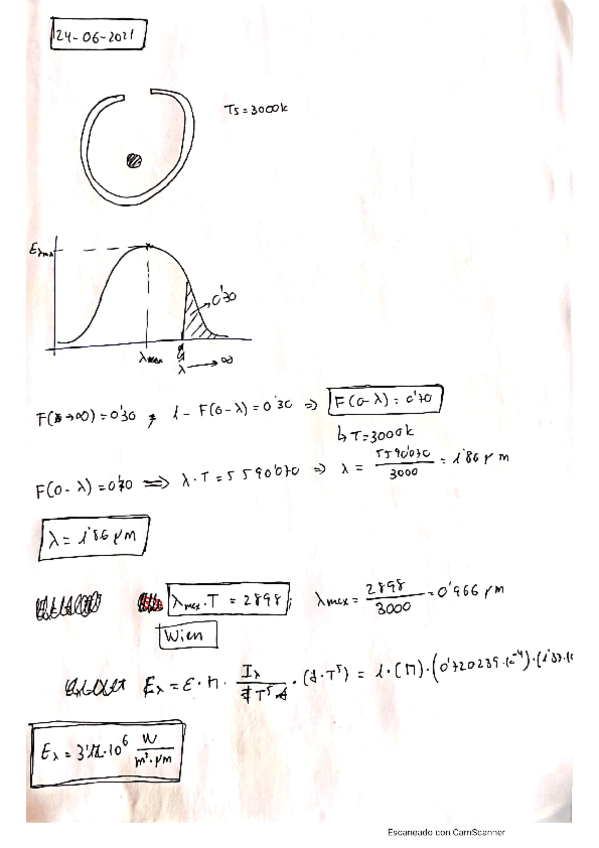 24-06-2021
Ts = 3000k
Eλmax
0'30
λmax
λ → ∞
F(λ→∞) = 0'30 ; 1 - F(0-λ) = 0'30 ⇒ F(0-λ) = 0'70
↳ T = 3000k
F(0-λ) = 0'70 ⟹ λ·T = 5590'070 ⟹ λ = 5590'070 / 3000 = 1'86 μm
λ = 1'86 μm
λmax·T = 2898; λmax = 2898 / 3000 = 0'966 μm
Wien
Eλ = ε·π· Iλ / σT⁵ ·(σ·T⁵) = 1·(π)·(0'720239·10⁻⁴)·
Eλ = 3'12·10⁶ W / m²·μm
Escaneado con CamScanner